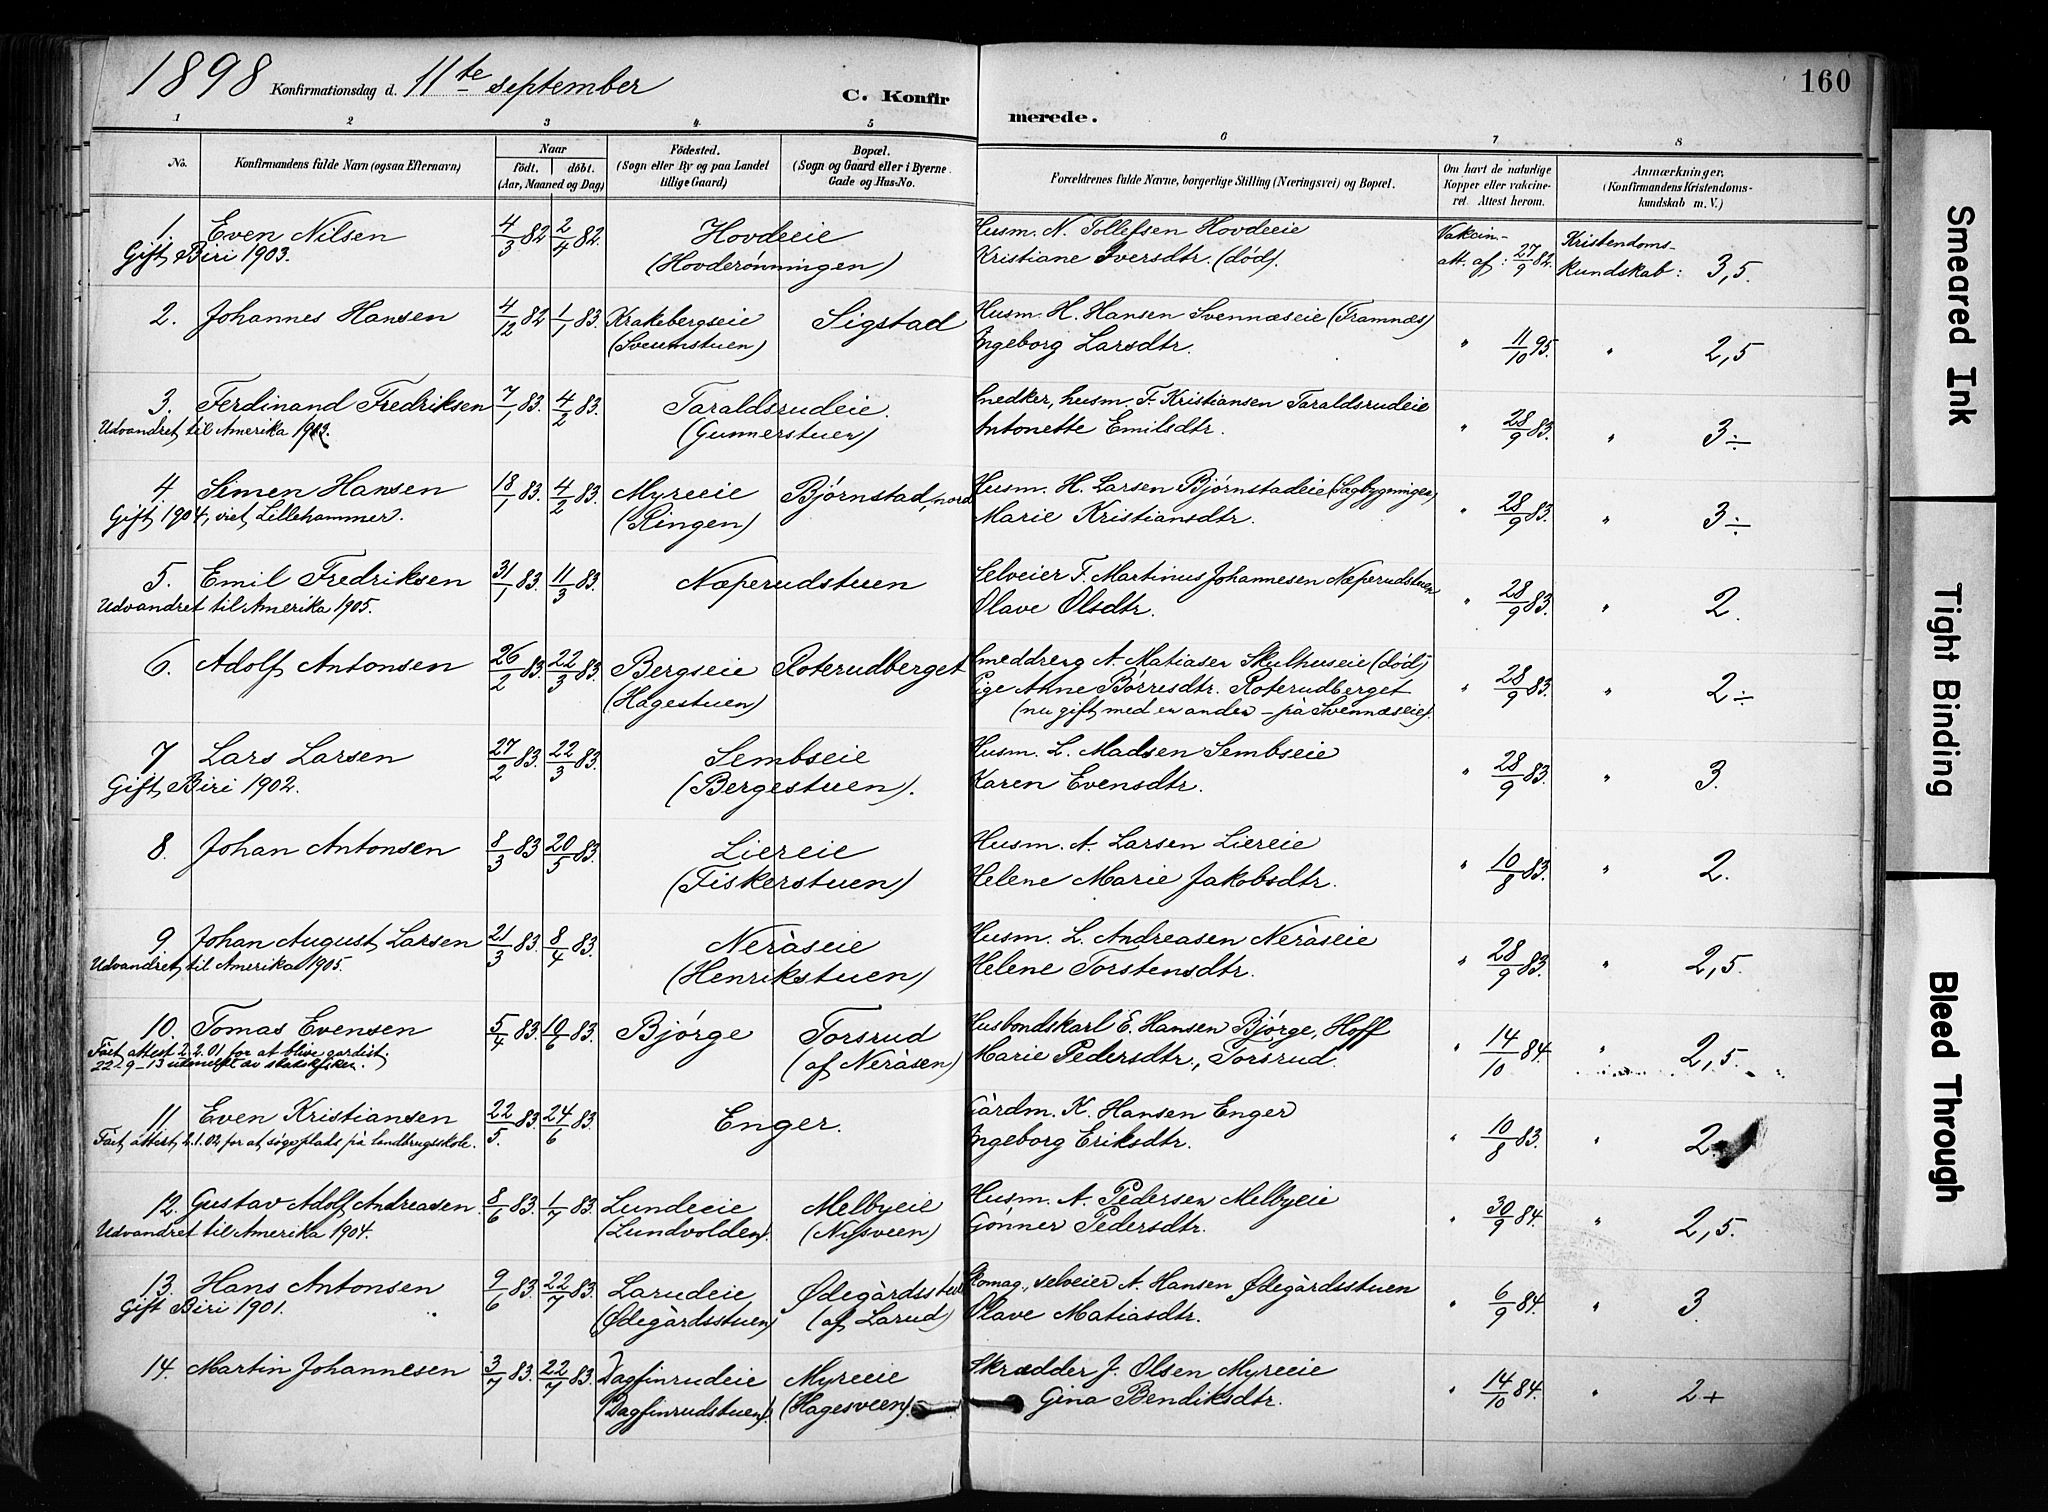 1898 Konfirmationsdag d. 11te september
C. Konfirmerede.
160
1 2 3 4 5 6 7 8
No.
Konfirmandens fulde Navn (ogsaa Efternavn)
Naar
født. døbt.
(Aar, Maaned og Dag)
Fødested.
(Sogn eller By og paa Landet
tillige Gaard)
Bopæl.
(Sogn og Gaard eller i Byerne
Gade og Hus-No.
Forældrenes fulde Navne, borgerlige Stilling (Næringsvei) og Bopæl.
Om havt de naturlige
Kopper eller vakcine-
ret. Attest herom.
Anmærkninger,
(Konfirmandens Kristendoms-
kundskab m. V.)
1. Even Nilsen 4/3 82 2/4 82. Hovdeeie Husm. N. Tollefsen Hovdeeie Vakcin- Kristendoms-
Gift, Biri 1903. (Hovderønningen) Kristiane Iversdtr. (død). att. af: 27/9 82. kundskab: 3,5.
2. Johannes Hansen 4/12 82 1/1 83. Krakebergseie Sigstad Husm. H. Hansen Svennæseie (Framnæs)
(Sveumstuen) Ingeborg Larsdtr. " 11/10 95. " 2,5
3. Ferdinand Fredriksen 7/1 83. 4/2 83. Taraldsrudeie. Snedker, husm. F. Kristiansen Taraldsrudeie
Udvandret til Amerika 1903. (Gunnerstuen) Antonette Emilsdtr. " 28/9 83. " 3÷
4. Simen Hansen 18/1 83. 4/2 83. Myreeie Bjørnstad, nord Husm. H. Larsen Bjørnstadeie (Sagbygningen)
Gift, 1904, viet, Lillehammer. (Ringen) Marie Kristiansdtr. " 28/9 83. " 3÷
5. Emil Fredriksen 31/1 83. 11/3 83. Næperudstuen Selveier F. Martinus Johannesen Næperudstuen
Udvandret til Amerika 1905. Olave Olsdtr. " 28/9 83. " 2.
6. Adolf Antonsen 26/2 83. 22/3 83. Bergseie Roterudberget Smeddreng A. Matiasen Skulhuseie (død)
(Hagestuen) Pige Anne Børresdtr. Roterudberget " 28/9 83. " 2÷
(nu gift med en anden - på Svennæseie).
7 Lars Larsen 27/2 83. 22/3 83. Sembseie Husm. L. Madsen Sembseie
Gift, Biri 1902. (Bergestuen). Karen Evensdtr. " 28/9 83. " 3.
8. Johan Antonsen 8/3 83. 20/5 83. Liereie Husm. A. Larsen Liereie
(Fiskerstuen) Helene Marie Jakobsdtr. " 10/8 83. " 2.
9. Johan August Larsen 21/3 83. 8/4 83. Neråseie Husm. L. Andreasen Neråseie
Udvandret til Amerika 1905. (Henrikstuen) Helene Torstensdtr. " 28/9 83. " 2,5.
10. Tomas Evensen 5/4 83. 10/6 83. Bjørge Torsrud Husbondskarl E. Hansen Bjørge, Hoff
Fået attest 2.2.01 for at blive gardist. (af Neråsen) Marie Pedersdtr., Torsrud. " 14/10 84. " 2,5.
22-9-13 utmeldt av statskirken.
11. Even Kristiansen 22/5 83. 24/6 83. Enger. Gårdm. K. Hansen Enger
Fået attest 2.1.02 for at søge plads på landbrugsskole. Ingeborg Eriksdtr. " 10/8 83. " 2
12. Gustav Adolf Andreasen. 8/6 83. 1/7 83. Lundeeie Melbyeie Husm. A. Pedersen Melbyeie
Udvandret til Amerika 1904. (Lundvolden). (Nysveen) Gønner Pedersdtr. " 30/9 84. " 2,5.
13. Hans Antonsen 9/6 83. 22/7 83. Larudeie Ødegårdsstuen Skomag., selveier A. Hansen Ødegårdsstuen
Gift Biri 1901. (Ødegårdsstuen) (af Larud) Olave Matiasdtr. " 6/9 84. " 3.
14. Martin Johannesen 3/7 83. 22/7 83. Dagfinrudeie Myreeie Skrædder J. Olsen Myreeie
(Dagfinrudstuen). (Hagesveen). Gina Bendiksdtr. " 14/10 84. " 2+
Smeared Ink
Tight Binding
Bleed Through